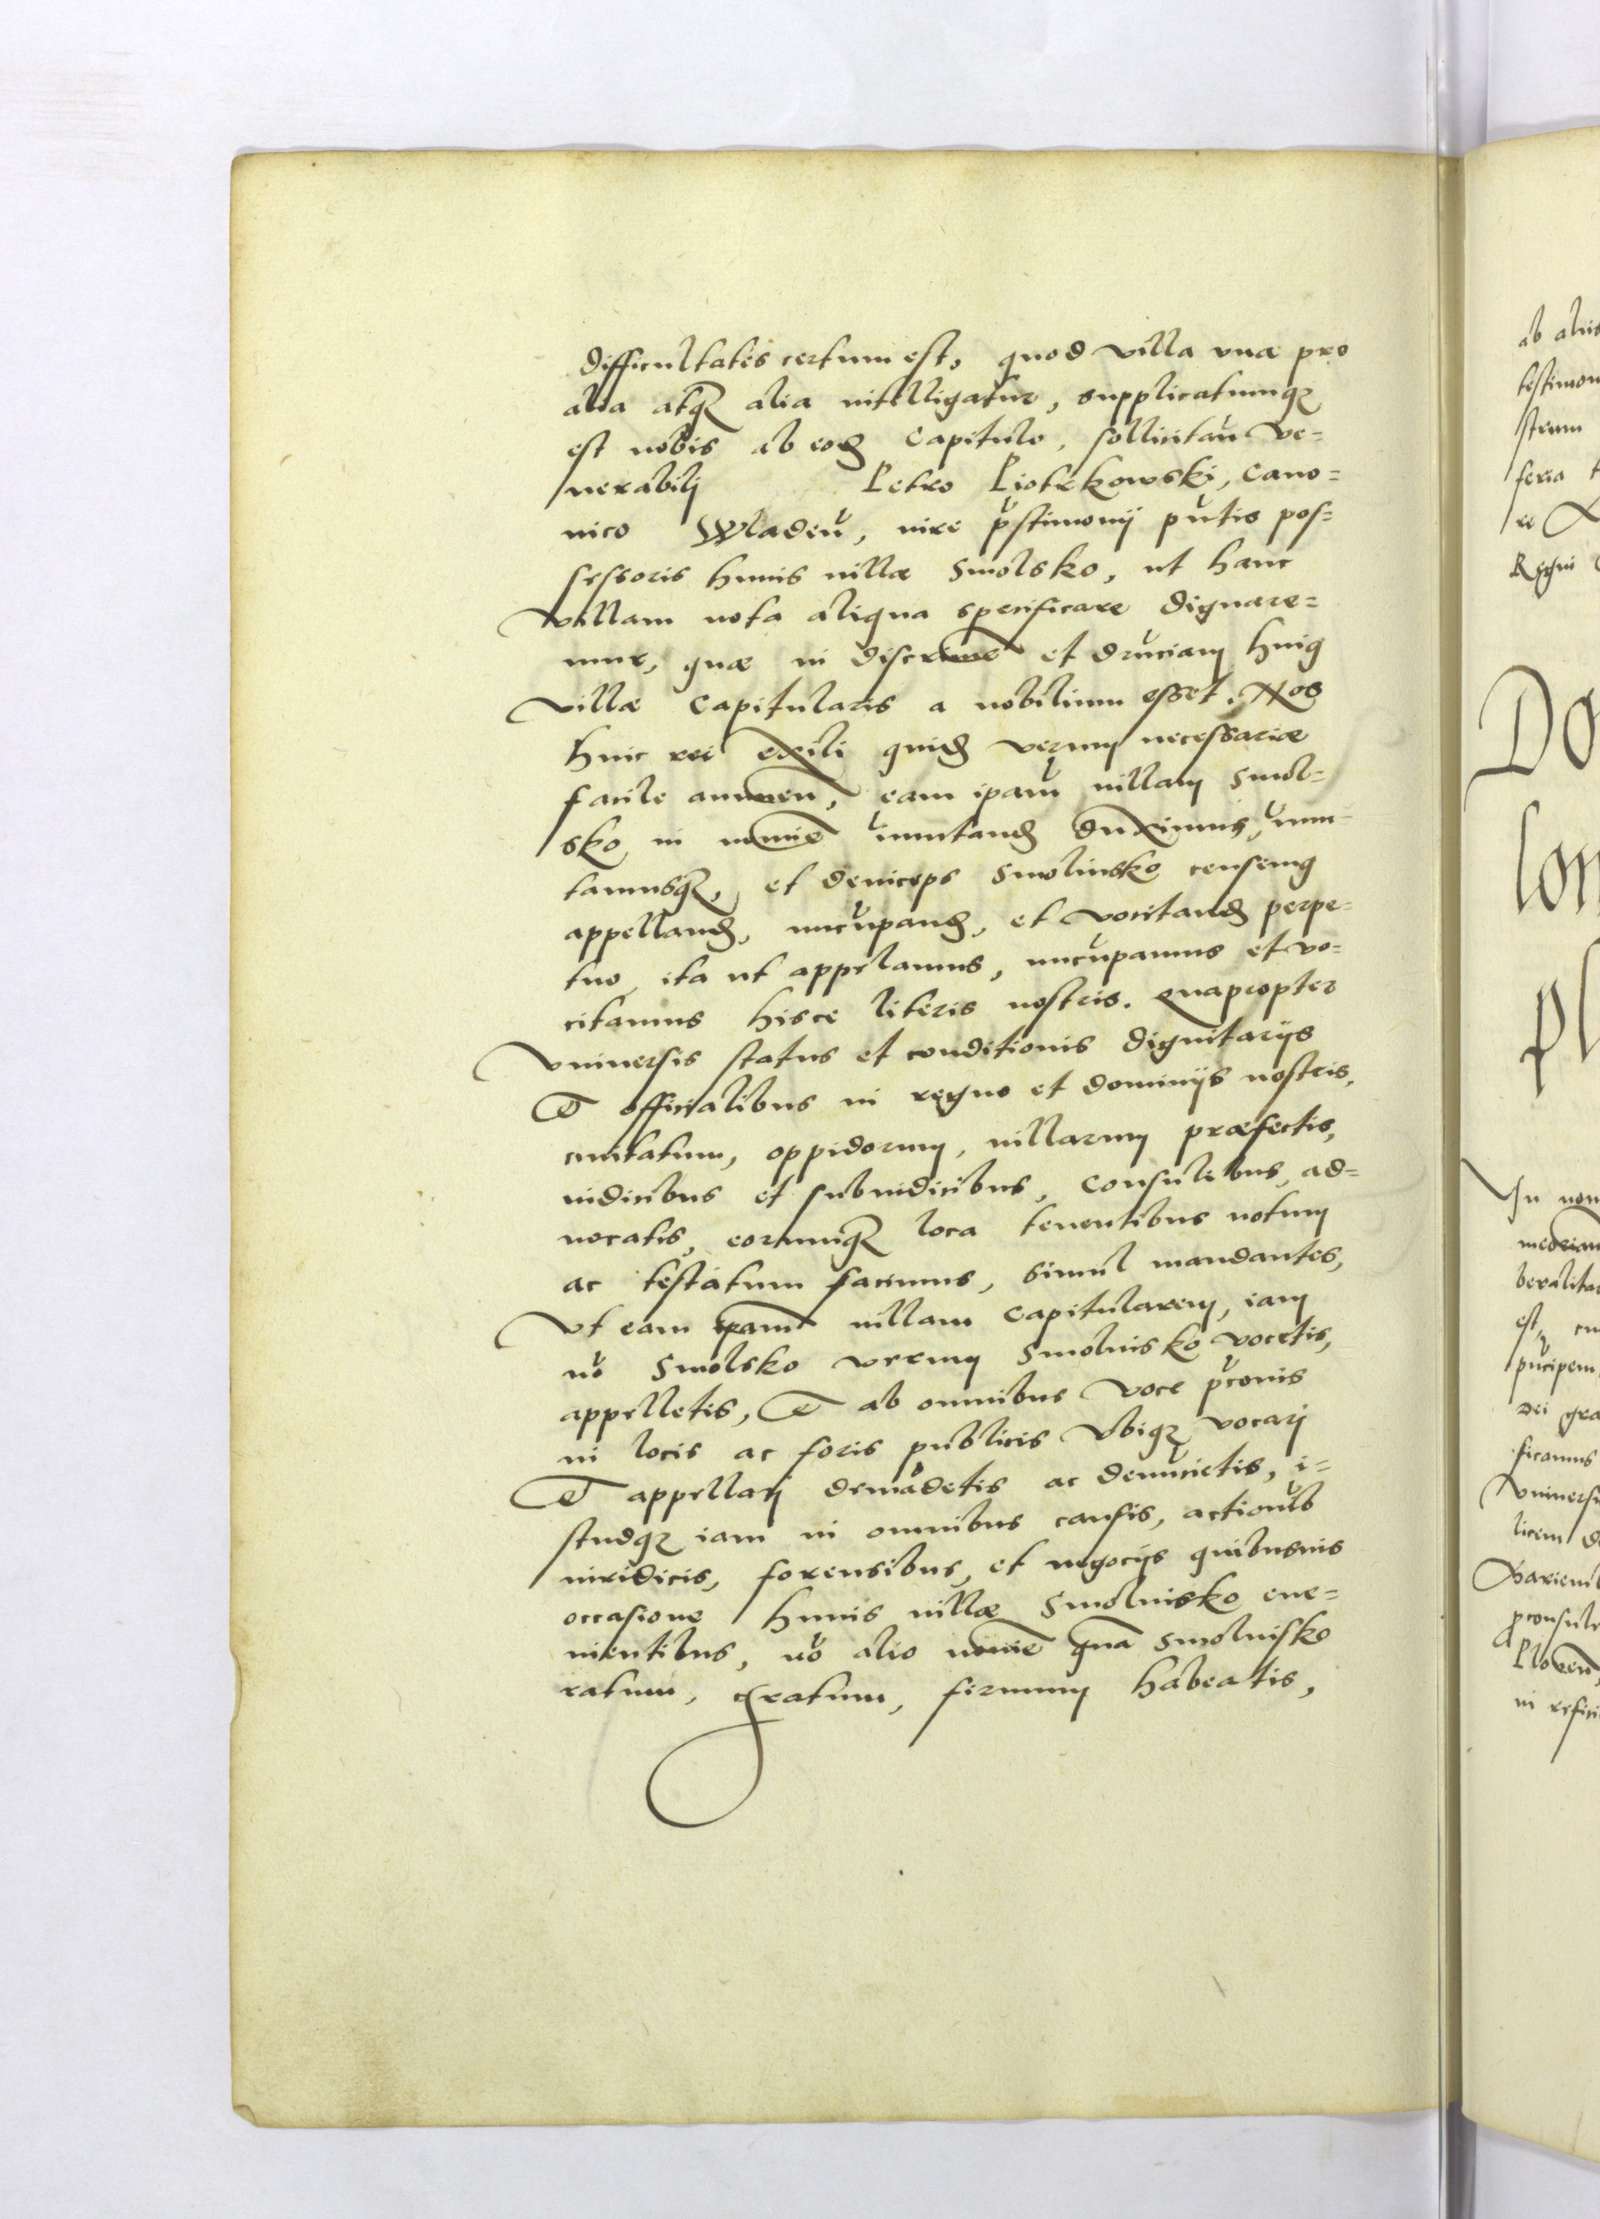 difficultates certum est, quod villa vna pro
alia atqȝ alia intelligatur, supplicatumqȝ
est nobis ab eod Capitulo, sollicitan ve=
nerabilj Petro Piotrkowski, Cano=
nico Wladen, iure pstimonij pntis pos=
sessoris huius uillæ Smolsko, ut hanc
villam nota aliqua specificare dignare=
mur, quæ in discrime et druciam huig
villæ Capitularis a nobilium esset. Nos
huic rei exili quid verum necessariæ
facile annuen, eam ipam uillam Smol=
sko in nomie imutand duximus, imu=
tamusqȝ, et deinceps Smolinsko censemg
appelland, nucupand, et vocitand perpe=
tuo, ita ut appelamus, nucupamus et vo=
citamus hisce literis nostris. Quapropter
vniuersis status et conditionis dignitarijs
Et officialibus in regno et dominijs nostris,
ciuitatum, oppidorum, uillarum præfectis,
iudicibus et subiudicibus, Consulibus, ad=
uocatis, eorumqȝ loca tenentibus notum
ac testatum facimus, simul mandantes,
Vt eam ipam uillam Capitularem, iam
no Smolsko verum Smolnisko vocetis,
appelletis, Et ab omnibus voce pconis
in locis ac foris publicis vbiqȝ vocarj
Et appellarj demadetis ac denucietis, i=
studqȝ iam in omnibus causis, actionib
iuridicis, forensibus, et negocijs quibusuis
occasione huius uillæ Smolnisko eue=
nientibus, no alio nomie qua Smolnisko
ratum, gratum, firmum habeatis,
ab aliis
feria
re
Regni
DO
lon
pl
In nom
beralita
est, cu
pncipem,
dei gra
ficamus
Vniuersi
licem de
pconsule
in refici